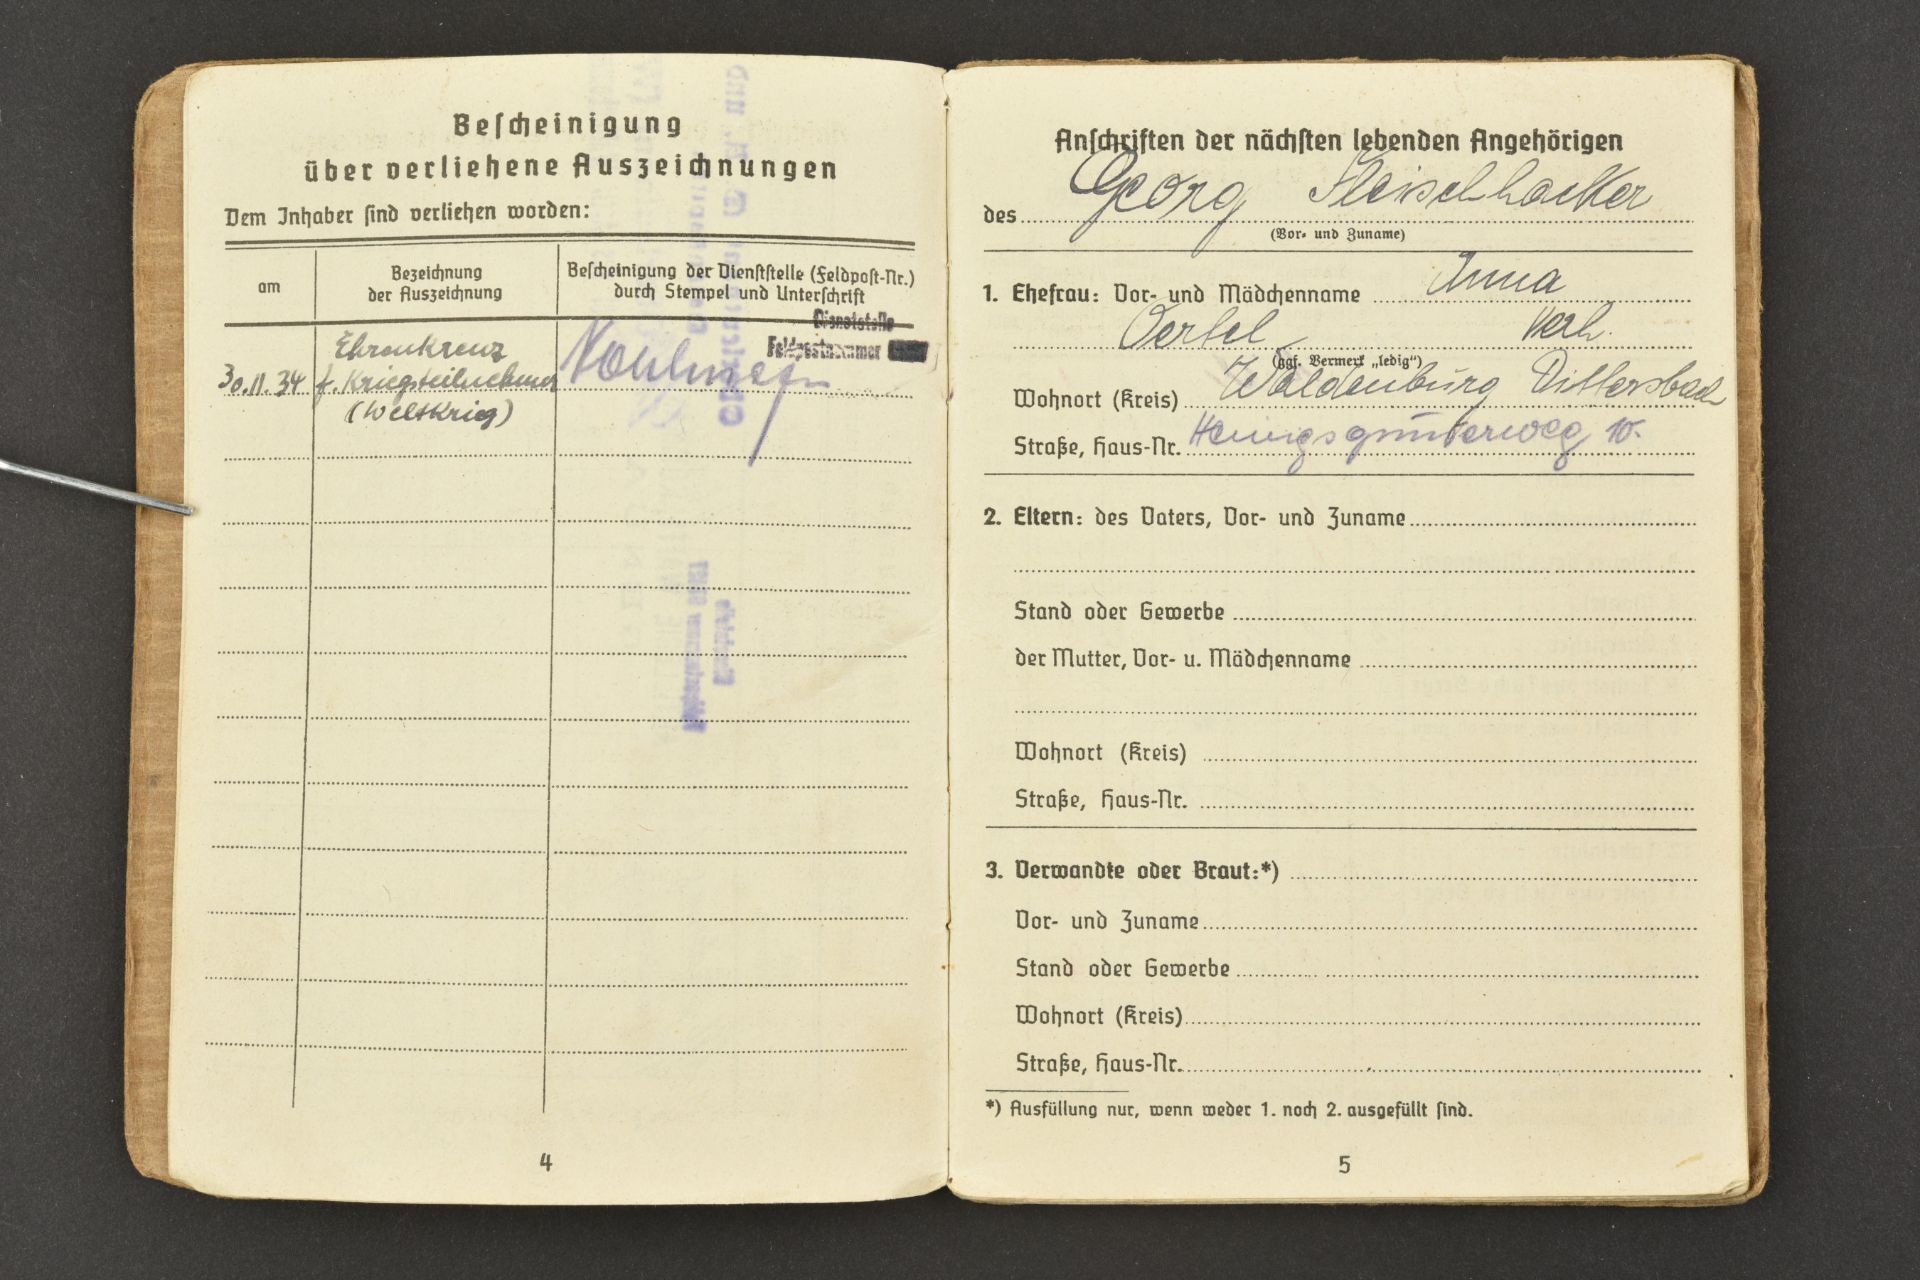 Bescheinigung
über verliehene Auszeichnungen
Dem Inhaber sind verliehen worden:
am
Bezeichnung
der Auszeichnung
Bescheinigung der Dienststelle (Feldpost-Nr.)
durch Stempel und Unterschrift
Dienststelle
Feldpostnummer
30.11.34
Ehrenkreuz
f. Kriegsteilnehmer
(Weltkrieg)
4
Anschriften der nächsten lebenden Angehörigen
des Georg Fleischhacker
(Vor- und Zuname)
1. Ehefrau: Vor- und Mädchenname Anna
Oertel Verh.
(ggf. Vermerk „ledig“)
Wohnort (Kreis) Waldenburg Dittersbach
Straße, Haus-Nr. 10.
2. Eltern: des Vaters, Vor- und Zuname
Stand oder Gewerbe
der Mutter, Vor- u. Mädchenname
Wohnort (Kreis)
Straße, Haus-Nr.
3. Verwandte oder Braut:*)
Vor- und Zuname
Stand oder Gewerbe
Wohnort (Kreis)
Straße, Haus-Nr.
*) Ausfüllung nur, wenn weder 1. noch 2. ausgefüllt sind.
5